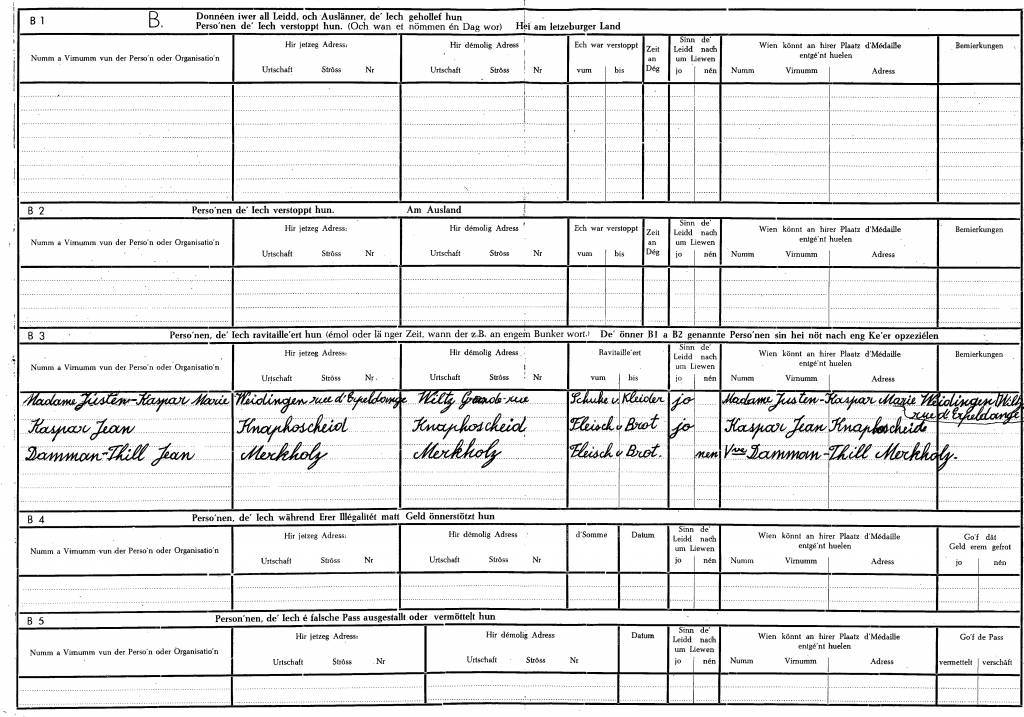 B 1
B.
Donnéen iwer all Leidd, och Auslänner, de' Iech gehollef hun
Perso'nen de' Iech verstoppt hun. (Och wan et nömmen én Dag wor) Hei am letzeburger Land
Numm a Virnumm vun der Perso'n oder Organisatio'n
Hir jetzeg Adress:
Urtschaft Ströss Nr
Hir démolig Adress
Urtschaft Ströss Nr
Ech war verstoppt
vum bis
Zeit an Dég
Sinn de' Leidd nach um Liewen
jo nén
Wien könnt an hirer Plaatz d'Médaille
entgé'nt huelen
Numm Virnumm Adress
Bemierkungen
B 2
Perso'nen de' Iech verstoppt hun. Am Ausland
Numm a Virnumm vun der Perso'n oder Organisatio'n
Hir jetzeg Adress:
Urtschaft Ströss Nr
Hir démolig Adress
Urtschaft Ströss Nr
Ech war verstoppt
vum bis
Zeit an Dég
Sinn de' Leidd nach um Liewen
jo nén
Wien könnt an hirer Plaatz d'Médaille
entgé'nt huelen
Numm Virnumm Adress
Bemierkungen
B 3
Perso'nen, de' Iech ravitaille'ert hun (émol oder länger Zeit, wann der z.B. an engem Bunker wort.) De' önner B1 a B2 genannte Perso'nen sin hei nöt nach eng Ke'er opzeziélen
Numm a Virnumm vun der Perso'n oder Organisatio'n
Hir jetzeg Adress:
Urtschaft Ströss Nr.
Hir démolig Adress:
Urtschaft Ströss Nr
Ravitaille'ert
vum bis
Sinn de' Leidd nach um Liewen
jo nén
Wien könnt an hirer Plaatz d'Médaille
entgé'nt huelen
Numm Virnumm Adress
Bemierkungen
Madame Justen-Kaspar Marie Weidingen rue d'Erpeldange Wiltz Grande rue Schuhe u. Kleider jo Madame Justen-Kaspar Marie Weidingen/Wiltz
rue d'Erpeldange
Kaspar Jean Knaphoscheid Knaphoscheid Fleisch u Brot jo Kaspar Jean Knaphoscheid
Damman-Thill Jean Merkholz Merkholz Fleisch u Brot. nen Vve Damman-Thill Merkholz.
B 4
Perso'nen, de' Iech während Erer Illégalitét matt Geld önnerstötzt hun
Numm a Virnumm vun der Perso'n oder Organisatio'n
Hir jetzeg Adress:
Urtschaft Ströss Nr
Hir démolig Adress:
Urtschaft Ströss Nr
d'Somme
Datum
Sinn de' Leidd nach um Liewen
jo nén
Wien könnt an hirer Plaatz d'Médaille
entgé'nt huelen
Numm Virnumm Adress
Go'f dât
Geld erem gefrot
jo nén
B 5
Person'nen, de' Iech é falsche Pass ausgestallt oder vermöttelt hun
Numm a Virnumm vun der Perso'n oder Organisatio'n
Hir jetzeg Adress:
Urtschaft Ströss Nr
Hir démolig Adress:
Urtschaft Ströss Nr
Datum
Sinn de' Leidd nach um Liewen
jo nén
Wien könnt an hirer Plaatz d'Médaille
entgé'nt huelen
Numm Virnumm Adress
Go'f de Pass
vermettelt verschäft